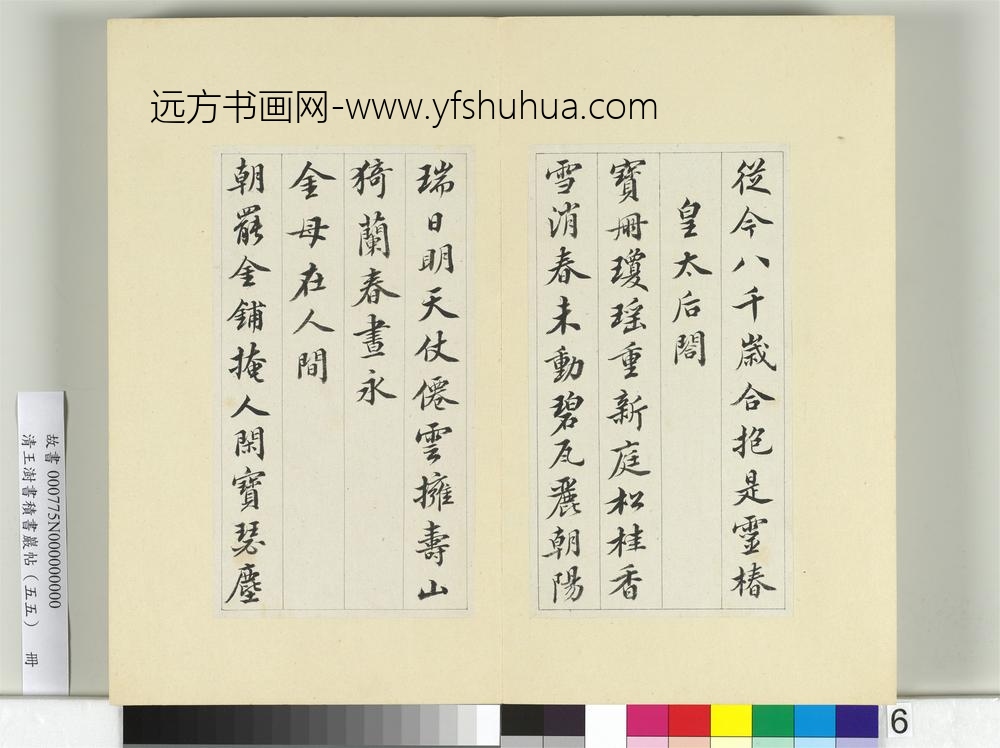 远方书画网-www.yfshuhua.com
從今八千歲合抱是靈椿
皇太后閤
寶冊瓊瑶重新庭松桂香
雪消春未動碧瓦麗朝陽
瑞日明天仗僊雲擁壽山
猗蘭春晝永
金母在人間
朝罷金鋪掩人閑寶瑟塵
故書000775N000000000
清王澍書積書巖帖（五五） 冊
6